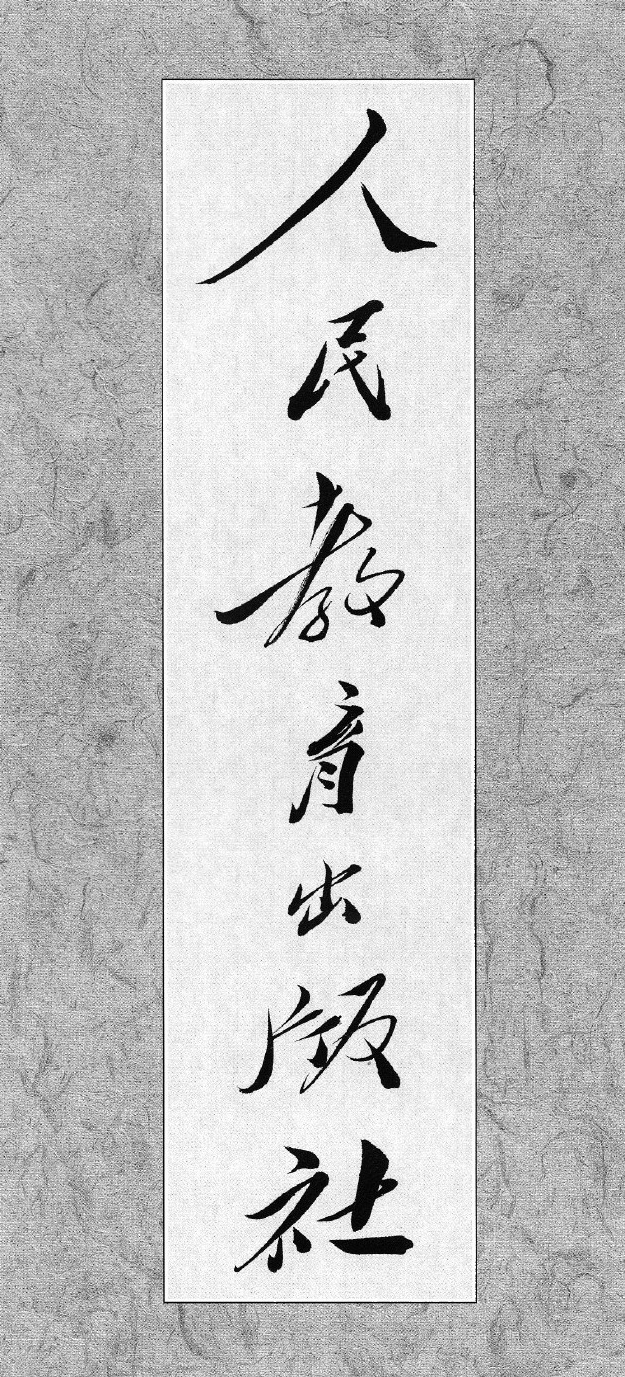 人民教育出版社